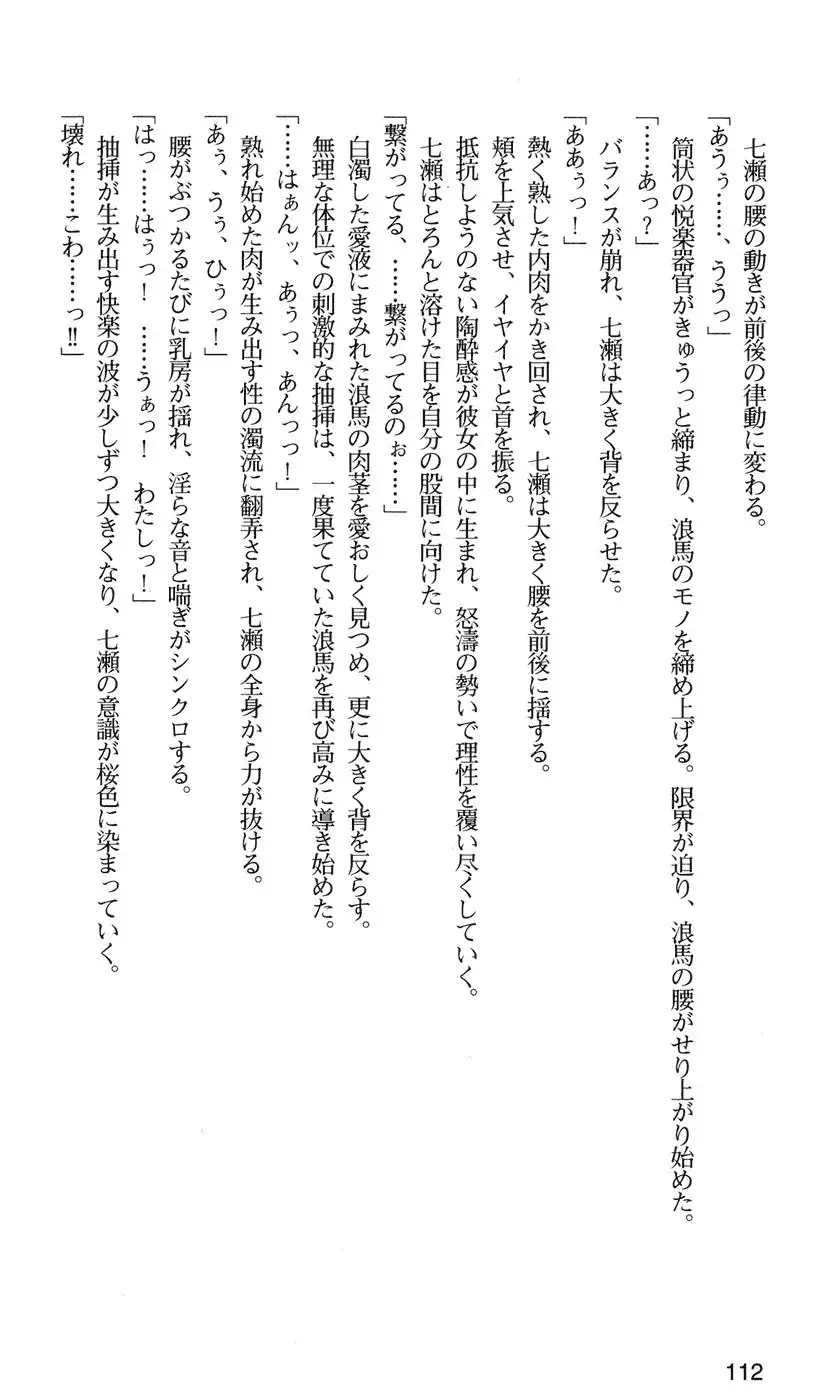 七瀬の腰の動きが前後の律動に変わる。
「あうぅ……、ううっ」
筒状の悦楽器官がきゅうっと締まり、浪馬のモノを締め上げる。限界が迫り、浪馬の腰がせり上がり始めた。
「……あっ？」
バランスが崩れ、七瀬は大きく背を反らせた。
「ああぅっ！」
熱く熟した内肉をかき回され、七瀬は大きく腰を前後に揺する。
頬を上気させ、イヤイヤと首を振る。
抵抗しようのない陶酔感が彼女の中に生まれ、怒濤の勢いで理性を覆い尽くしていく。
七瀬はとろんと溶けた目を自分の股間に向けた。
「繋がってる、……繋がってるのぉ……」
白濁した愛液にまみれた浪馬の肉茎を愛おしく見つめ、更に大きく背を反らす。
無理な体位での刺激的な抽挿は、一度果てていた浪馬を再び高みに導き始めた。
「……はぁんッ、あぅっ、あんっっ！」
熟れ始めた肉が生み出す性の濁流に翻弄され、七瀬の全身から力が抜ける。
「あぅ、うぅ、ひぅっ！」
腰がぶつかるたびに乳房が揺れ、淫らな音と喘ぎがシンクロする。
「はっ……はぅっ！　……うぁっ！　わたしっ！」
抽挿が生み出す快楽の波が少しずつ大きくなり、七瀬の意識が桜色に染まっていく。
「壊れ……こわ……っ!!」
112